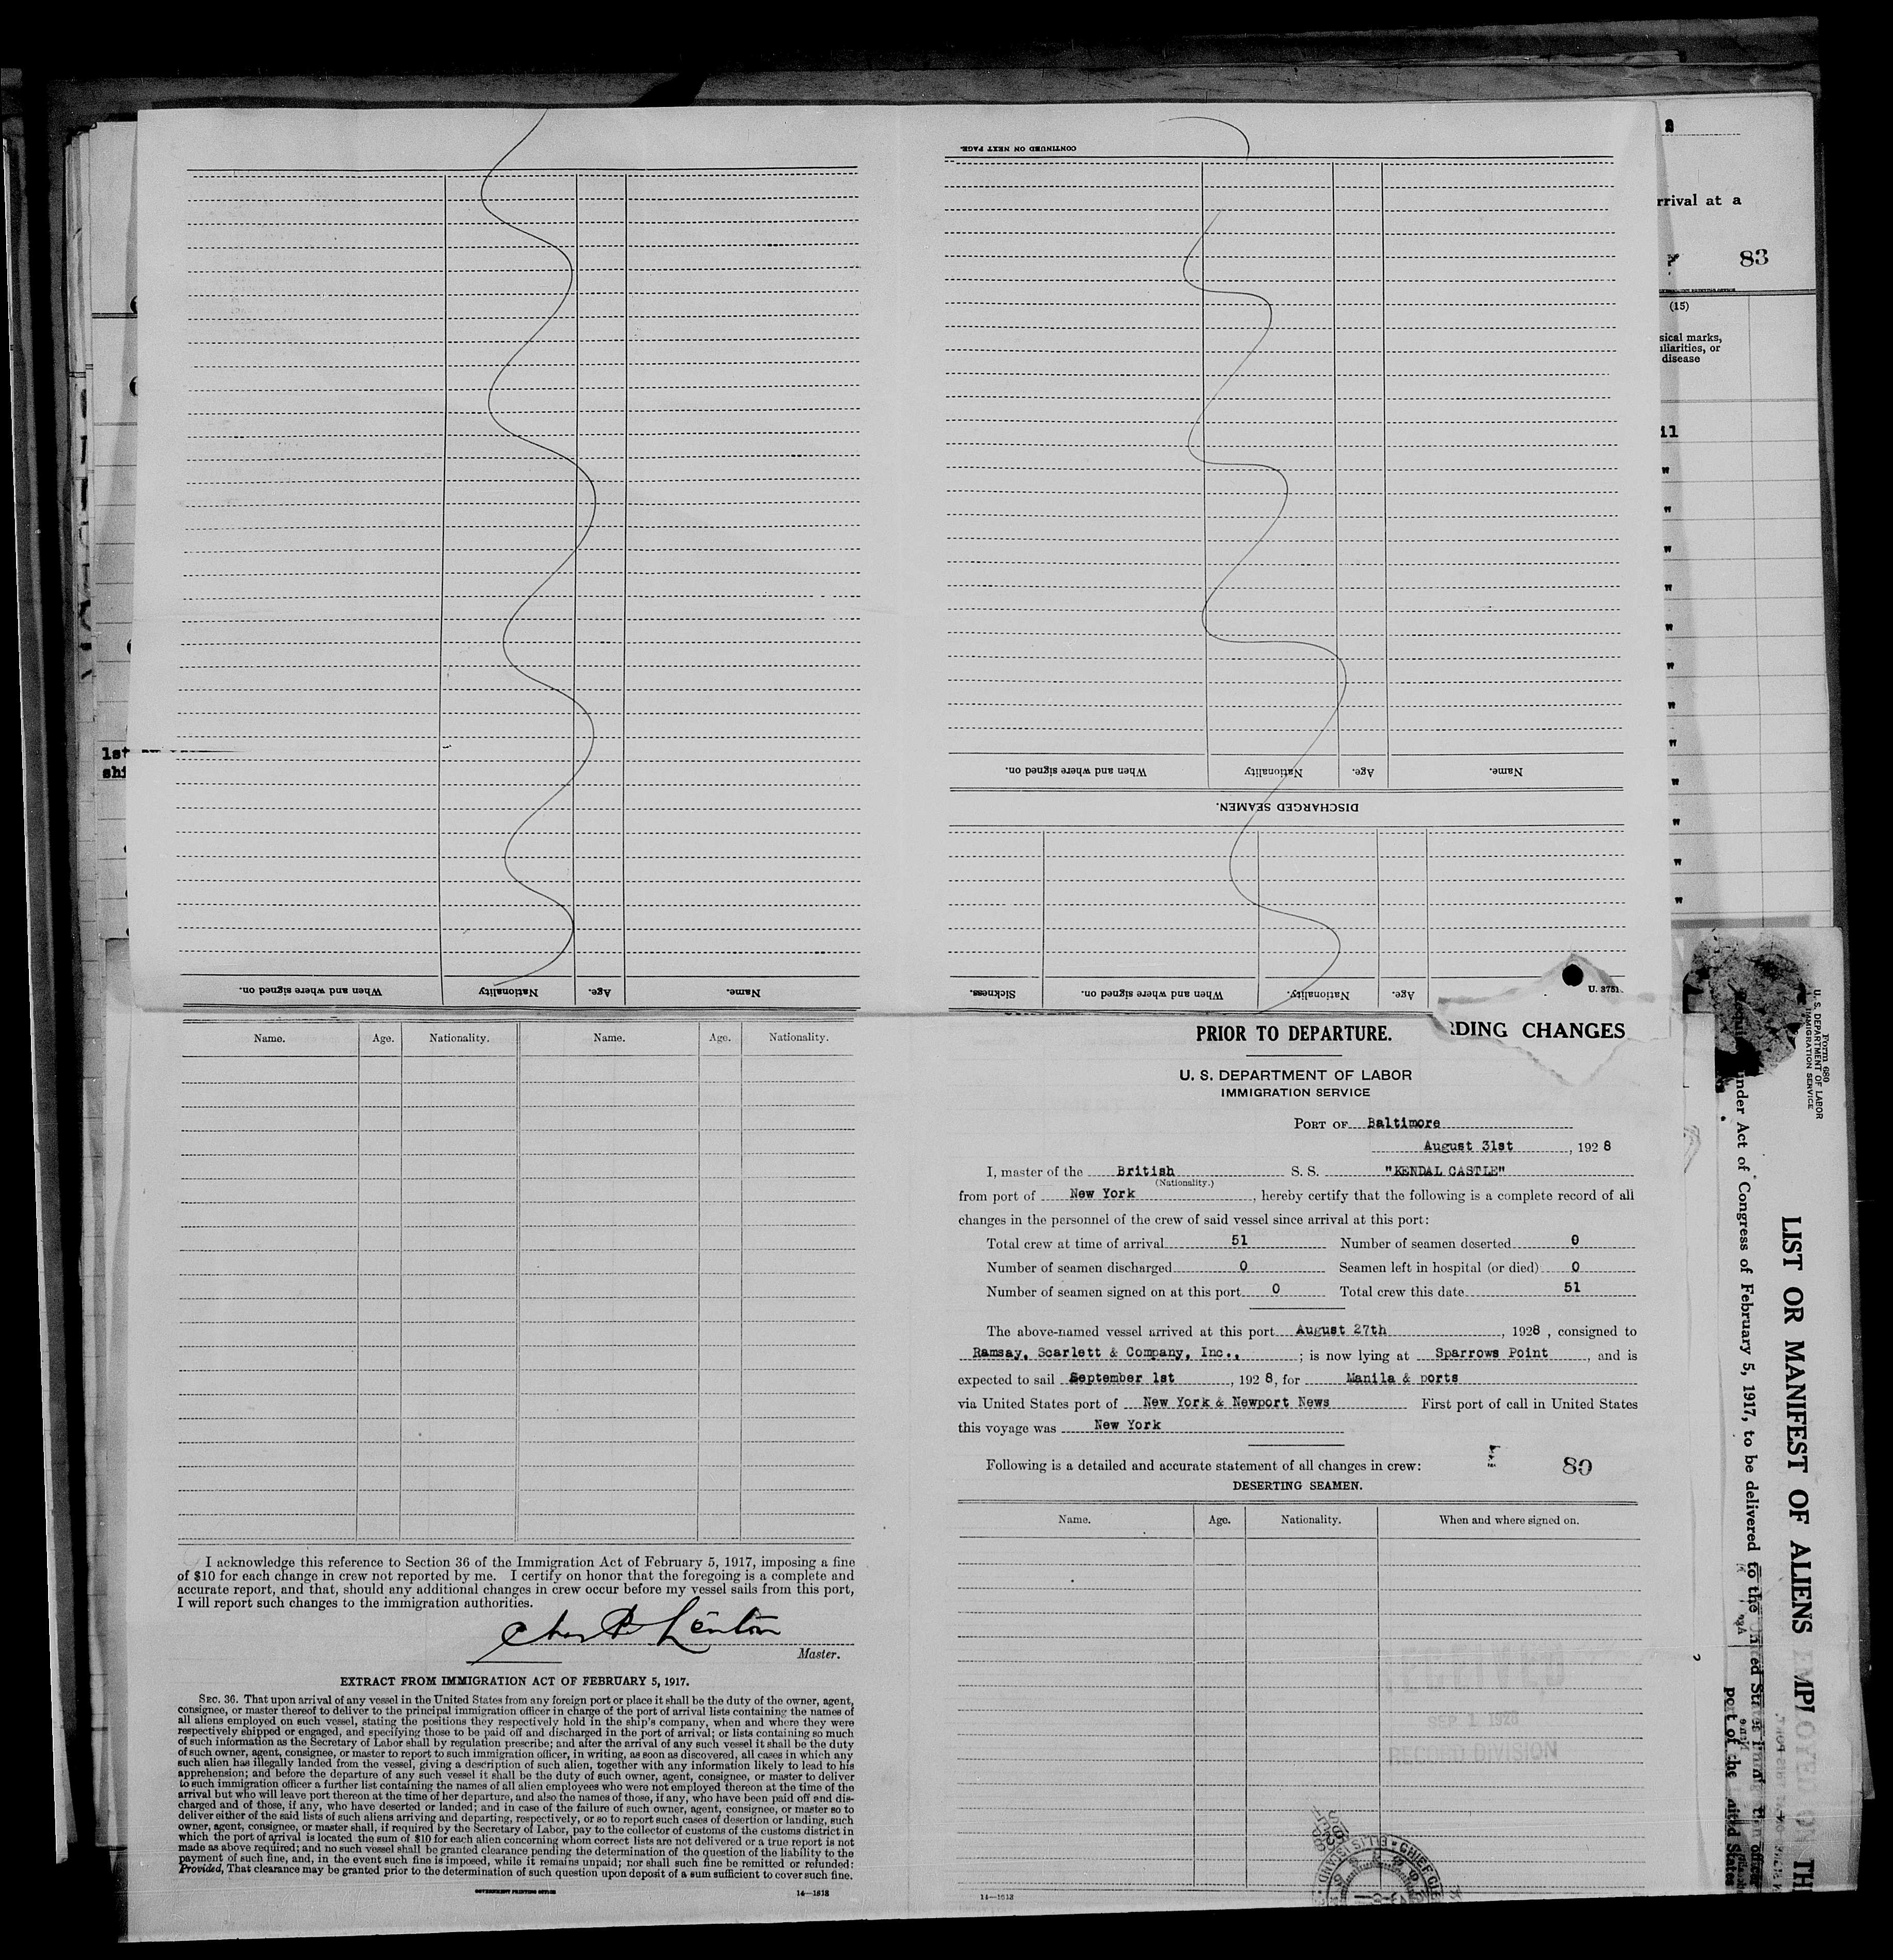 CONTINUED ON NEXT PAGE.
Name.
Age.
Nationality
When and where signed on.
DISCHARGED SEAMEN.
U. 3751
Age.
Nationality.
When and where signed on.
Sickness.
Name.
Age.
Nationality
When and where signed on.
rrival at a
83
(15)
sical marks,
uliarities, or
disease
il
"
"
"
"
"
"
"
"
"
"
"
"
1st
shi
Name.
Age.
Nationality.
Name.
Age.
Nationality.
I acknowledge this reference to Section 36 of the Immigration Act of February 5, 1917, imposing a fine
of $10 for each change in crew not reported by me. I certify on honor that the foregoing is a complete and
accurate report, and that, should any additional changes in crew occur before my vessel sails from this port,
I will report such changes to the immigration authorities.
Lenton
Master.
EXTRACT FROM IMMIGRATION ACT OF FEBRUARY 5, 1917.
SEC. 36. That upon arrival of any vessel in the United States from any foreign port or place it shall be the duty of the owner, agent,
consignee, or master thereof to deliver to the principal immigration officer in charge of the port of arrival lists containing the names of
all aliens employed on such vessel, stating the positions they respectively hold in the ship's company, when and where they were
respectively shipped or engaged, and specifying those to be paid off and discharged in the port of arrival; or lists containing so much
of such information as the Secretary of Labor shall by regulation prescribe; and after the arrival of any such vessel it shall be the duty
of such owner, agent, consignee, or master to report to such immigration officer, in writing, as soon as discovered, all cases in which any
such alien has illegally landed from the vessel, giving a description of such alien, together with any information likely to lead to his
apprehension; and before the departure of any such vessel it shall be the duty of such owner, agent, consignee, or master to deliver
to such immigration officer a further list containing the names of all alien employees who were not employed thereon at the time of the
arrival but who will leave port thereon at the time of her departure, and also the names of those, if any, who have been paid off and dis-
charged and of those, if any, who have deserted or landed; and in case of the failure of such owner, agent, consignee, or master so to
deliver either of the said lists of such aliens arriving and departing, respectively, or so to report such cases of desertion or landing, such
owner, agent, consignee, or master shall, if required by the Secretary of Labor, pay to the collector of customs of the customs district in
which the port of arrival is located the sum of $10 for each alien concerning whom correct lists are not delivered or a true report is not
made as above required; and no such vessel shall be granted clearance pending the determination of the question of the liability to the
payment of such fine, and, in the event such fine is imposed, while it remains unpaid; nor shall such fine be remitted or refunded:
Provided, That clearance may be granted prior to the determination of such question upon deposit of a sum sufficient to cover such fine.
GOVERNMENT PRINTING OFFICE
14—1618
RDING CHANGES
PRIOR TO DEPARTURE.
U. S. DEPARTMENT OF LABOR
IMMIGRATION SERVICE
PORT OF Baltimore
August 31st, 1928
I, master of the British S. S. "KENDAL CASTLE"
(Nationality.)
from port of New York, hereby certify that the following is a complete record of all
changes in the personnel of the crew of said vessel since arrival at this port:
Total crew at time of arrival 51 Number of seamen deserted 0
Number of seamen discharged 0 Seamen left in hospital (or died) 0
Number of seamen signed on at this port 0 Total crew this date 51
The above-named vessel arrived at this port August 27th, 1928, consigned to
Ramsay, Scarlett & Company, Inc., ; is now lying at Sparrows Point, and is
expected to sail September 1st, 1928, for Manila & ports
via United States port of New York & Newport News First port of call in United States
this voyage was New York
Following is a detailed and accurate statement of all changes in crew:
80
DESERTING SEAMEN.
Name.
Age.
Nationality.
When and where signed on.
RECEIVED
SEP 1 1928
RECORD DIVISION
ELLIS ISLAND
CHIEF CLE
14—1618
Form 680
U. S. DEPARTMENT OF LABOR
IMMIGRATION SERVICE
LIST OR MANIFEST OF ALIENS EMPLOYED ON TH
under Act of Congress of February 5, 1917, to be delivered to the
port of the United States